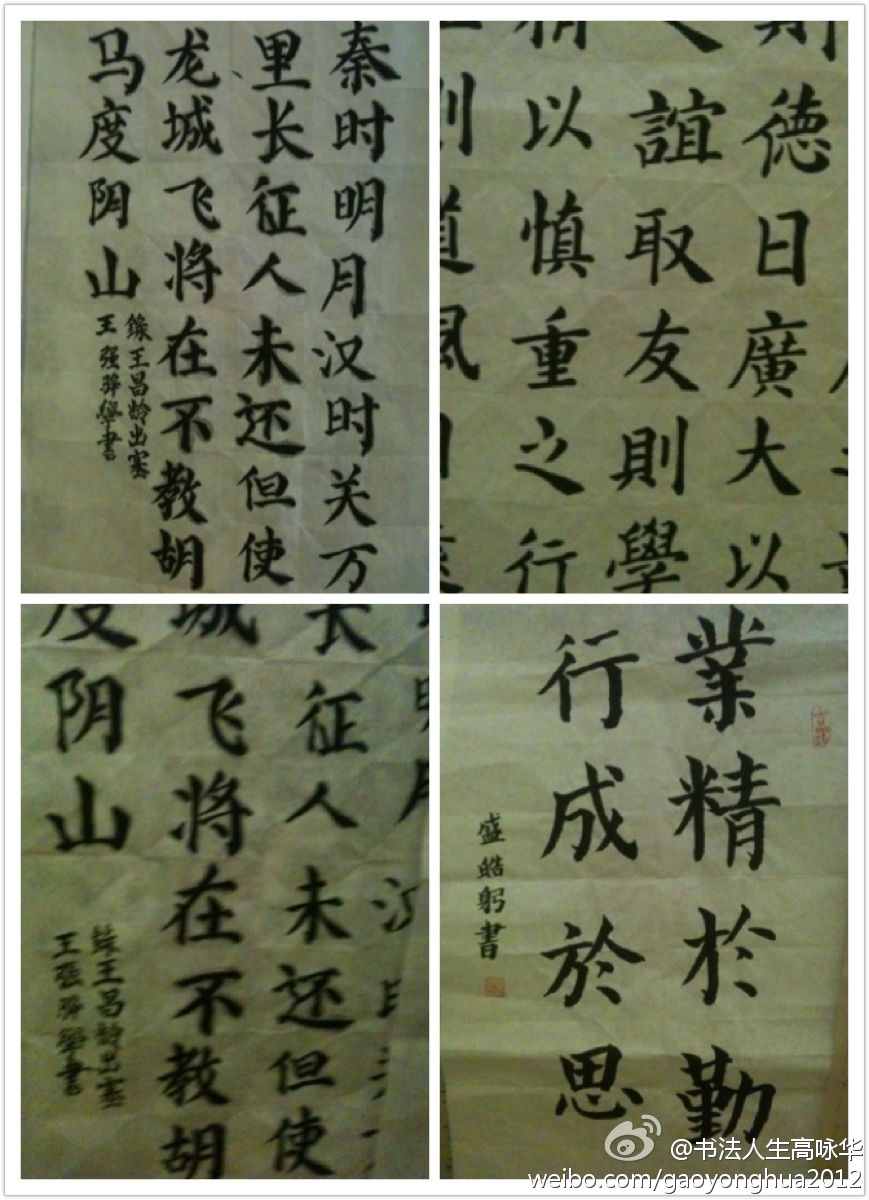 秦时明月汉时关万
里长征人未还但使
龙城飞将在不教胡
马度阴山
錄王昌龄出塞
王强學書
德日廣大以
誼取友則學
以慎重之行
道風
长征人未还但使
城飞将在不教胡
度阴山
錄王昌龄出塞
王强學書
業精於勤
行成於思
盛皓躬書
@书法人生高咏华
weibo.com/gaoyonghua2012